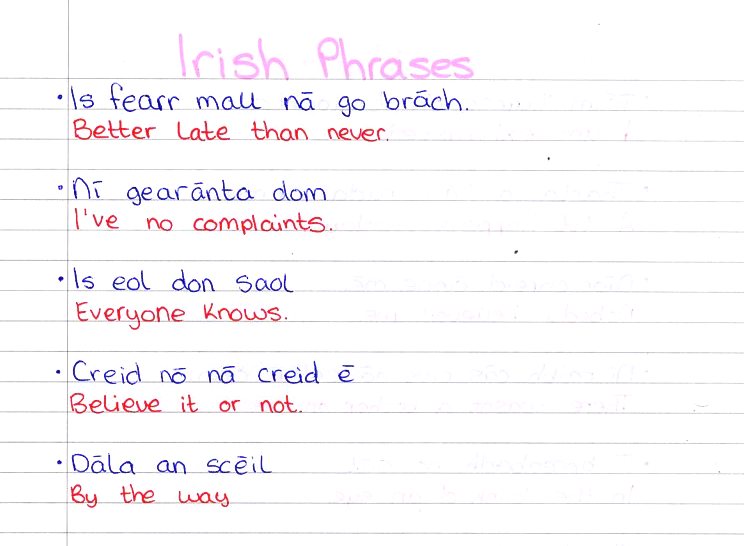 Irish Phrases
• Is fearr mall nā go brāch.
Better late than never.
• Nī gearānta dom
I've no complaints.
• Is eol don saol
Everyone knows.
• Creid nō nā creid ē
Believe it or not.
• Dāla an scēil
By the way